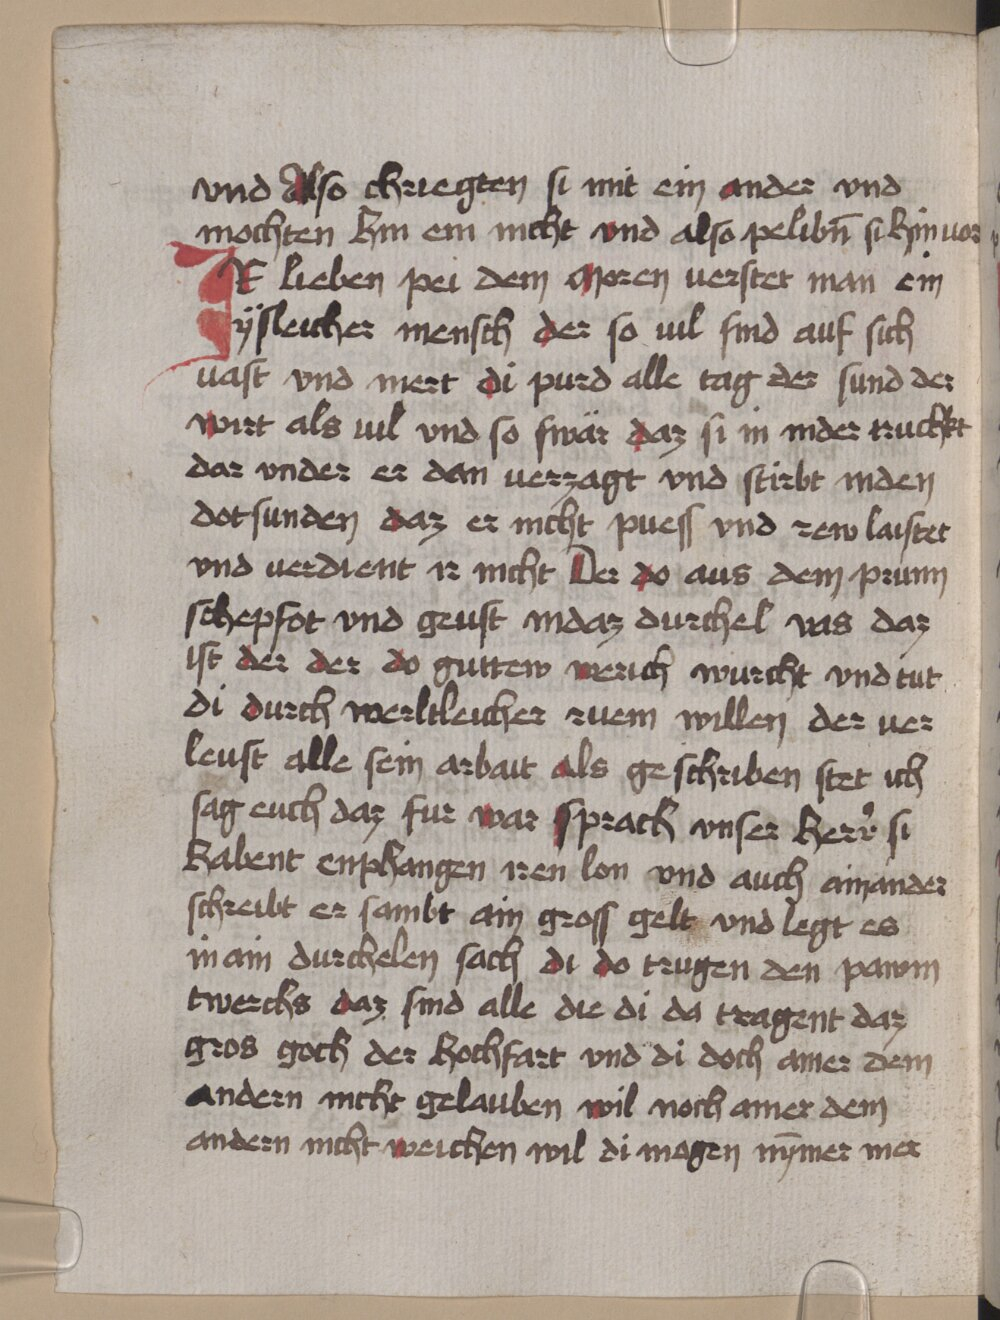 vnd Also chriegten si mit ein ander vnd
mochten hin ein nicht vnd also pelibn̄ si hin vor
Ir lieben pei dem Moren verstet man ein
ÿsleicher mensch der so uil sind auf sich
uast vnd mert di purd alle tag der sund der
wirt als uil vnd so swär daz si in nider truckht
dar vnder er dan verzagt vnd stirbt inden
dotsunden daz er nicht puess vnd rew laistet
vnd verdient ir nicht Der do aus dem prunn
schepfot vnd geust indaz durchel vas daz
ist der der do guttew werich wurcht vnd tut
di durch werltleicher ruem willen der ver
leust alle sein arbait als geschriben stet ich
sag euch daz fur war sprach vnser herr si
habent enphangen iren lon vnd auch ainander
schreibt er sambt ain gross gelt vnd legt es
in ain durchelen sach di do trugen den pawm
twerchs daz sind alle die di da tragent daz
gros goch der hochfart vnd di doch ainer dem
andern nicht gelauben wil noch ainer dem
andern nicht weichen wil di mogen nÿmer mer